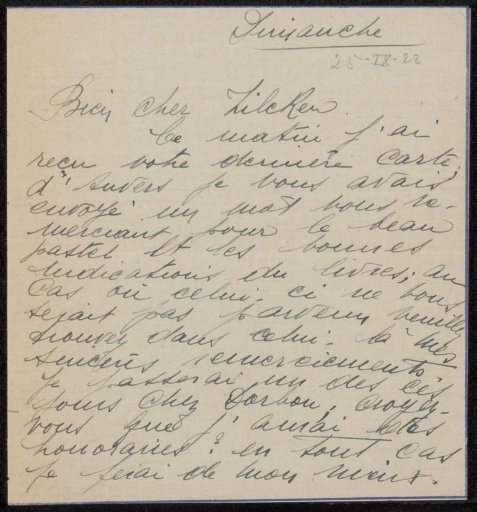 Dimanche
25-IX-22
Bien cher Zilcken
Ce matin j'ai
reçu votre dernière carte.
d'Anvers je vous avais
envoyé un mot vous re-
merciant pour le beau
pastel et les bonnes
indications du livres; au
cas où celui-ci ne vous
serait pas parvenu veuillez
trouvez dans celui-là mes
sincères remerciements
je passerai un des ces
jours chez Dorbon, croyez-
vous que j'aurai
honoraires? en tout cas
je ferai de mon mieux.